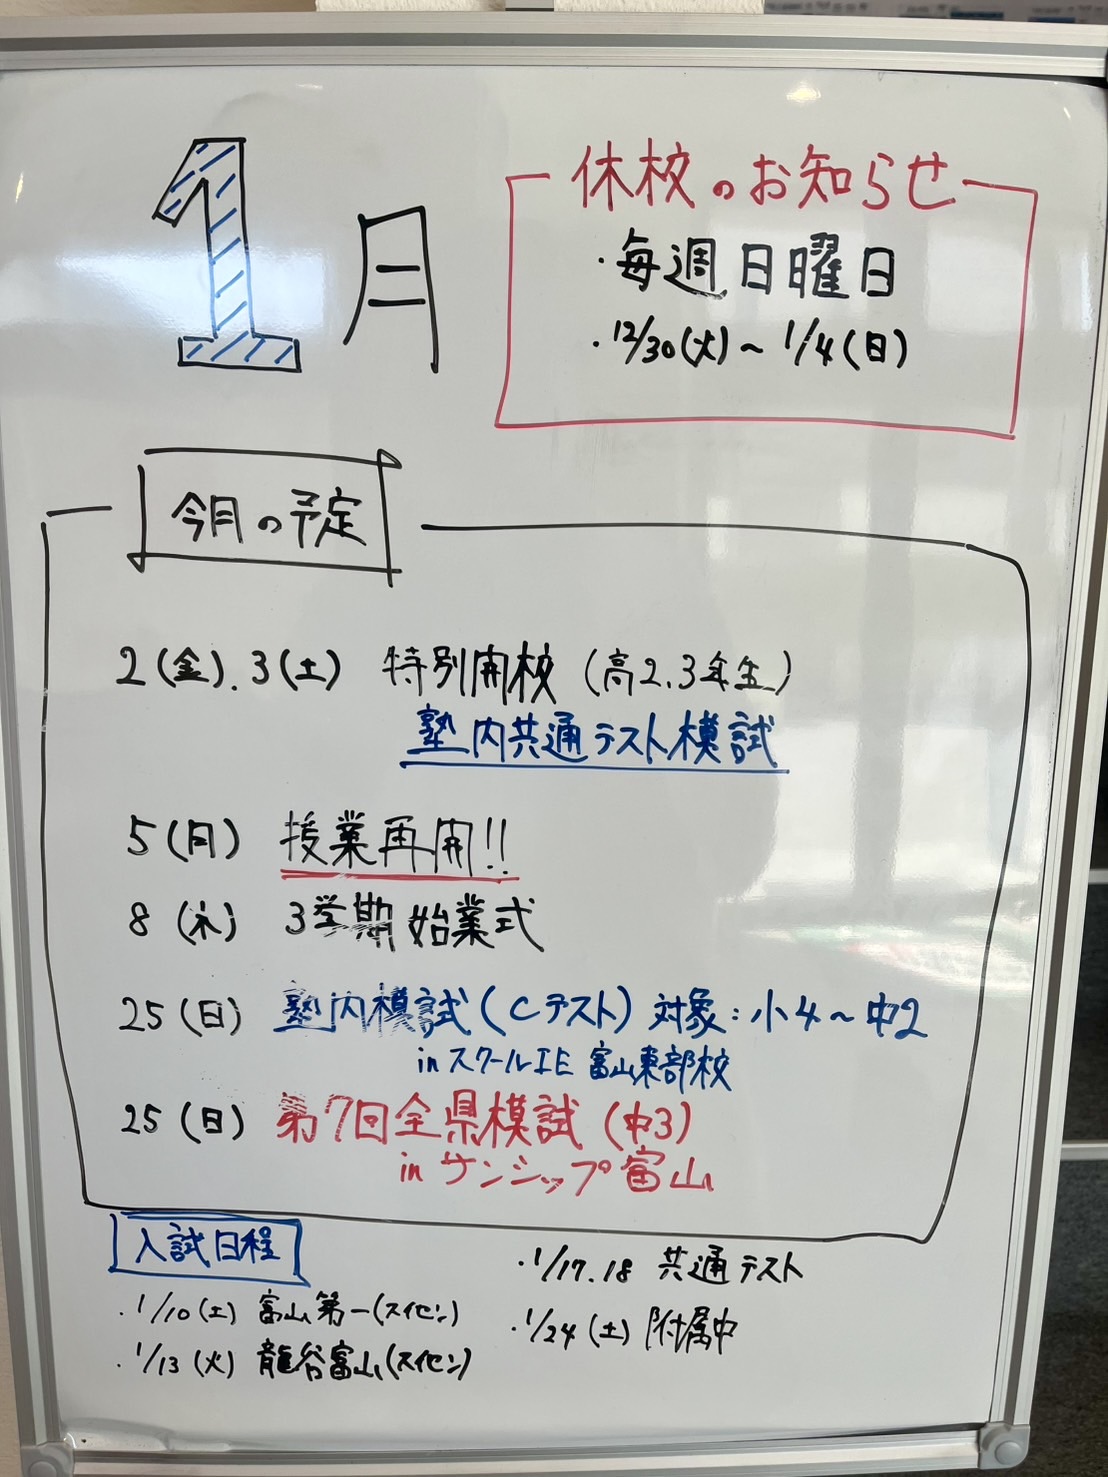 1月
休校のお知らせ
・毎週日曜日
・12/30(火)～1/4(日)
今月の予定
2(金).3(土) 特別開校(高2.3年生)
塾内共通テスト模試
5(月) 授業再開!!
8(木) 3学期始業式
25(日) 塾内模試(Cテスト) 対象:小4～中2
inスクールIE 富山東部校
25(日) 第7回全県模試(中3)
inサンシップ富山
入試日程
・1/10(土) 富山第一(スイセン)
・1/13(火) 龍谷富山(スイセン)
・1/17.18 共通テスト
・1/24(土) 附属中